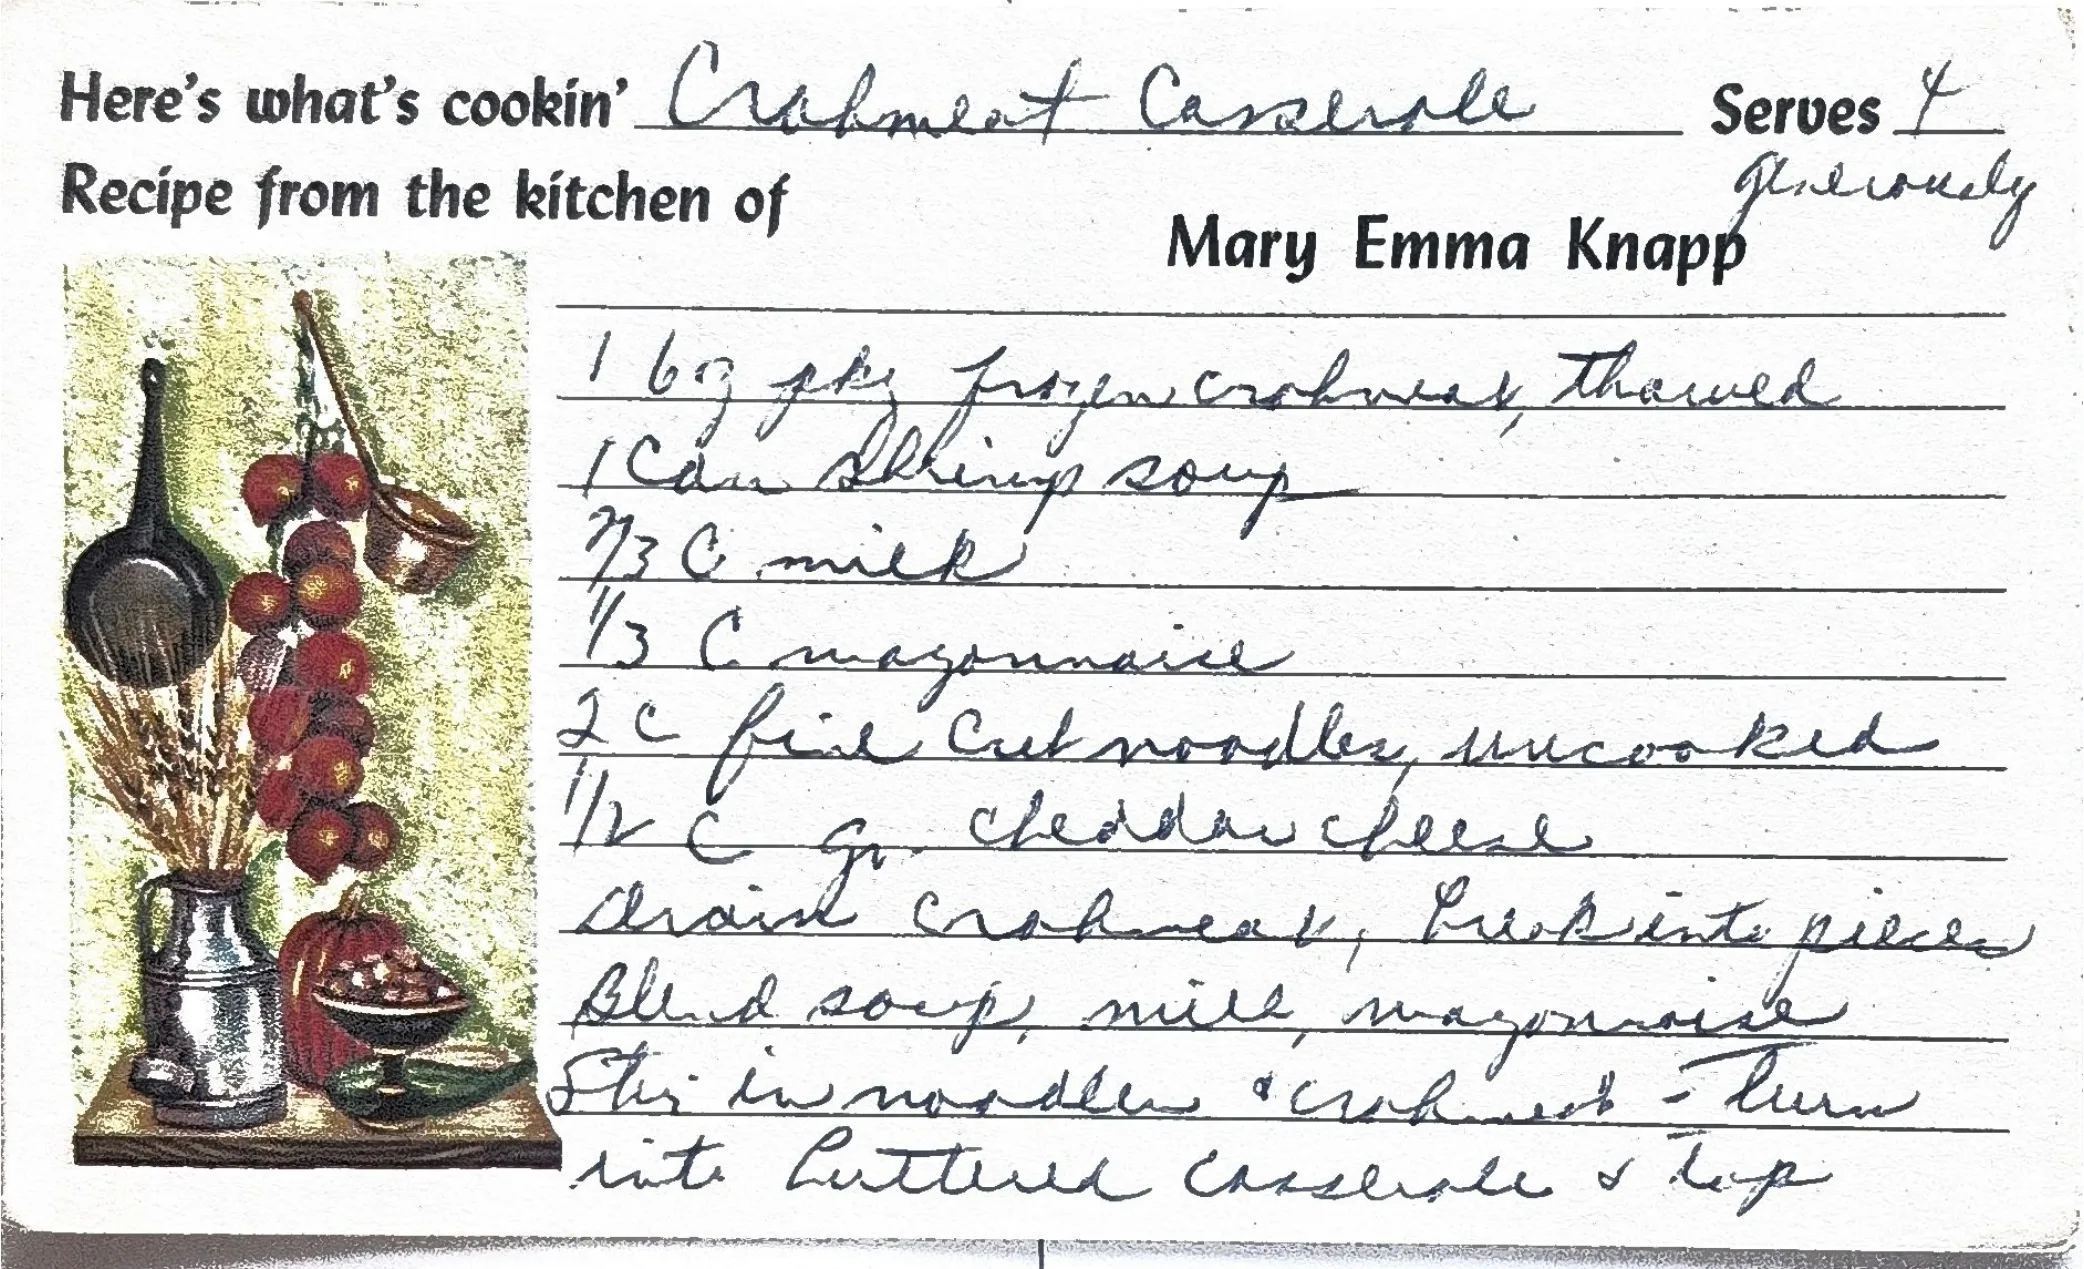 Here's what's cookin' Crabmeat Casserole Serves 4
generously
Recipe from the kitchen of
Mary Emma Knapp
1 6 oz pkg frozen crabmeat, thawed
1 Can Shrimp soup
2/3 C milk
1/3 C mayonnaise
2 C fine cut noodles, uncooked
1/2 C gr. cheddar cheese
Drain crabmeat, break into pieces
Blend soup, milk, mayonnaise
Stir in noodles & crabmeat - Turn
into buttered casserole & Top